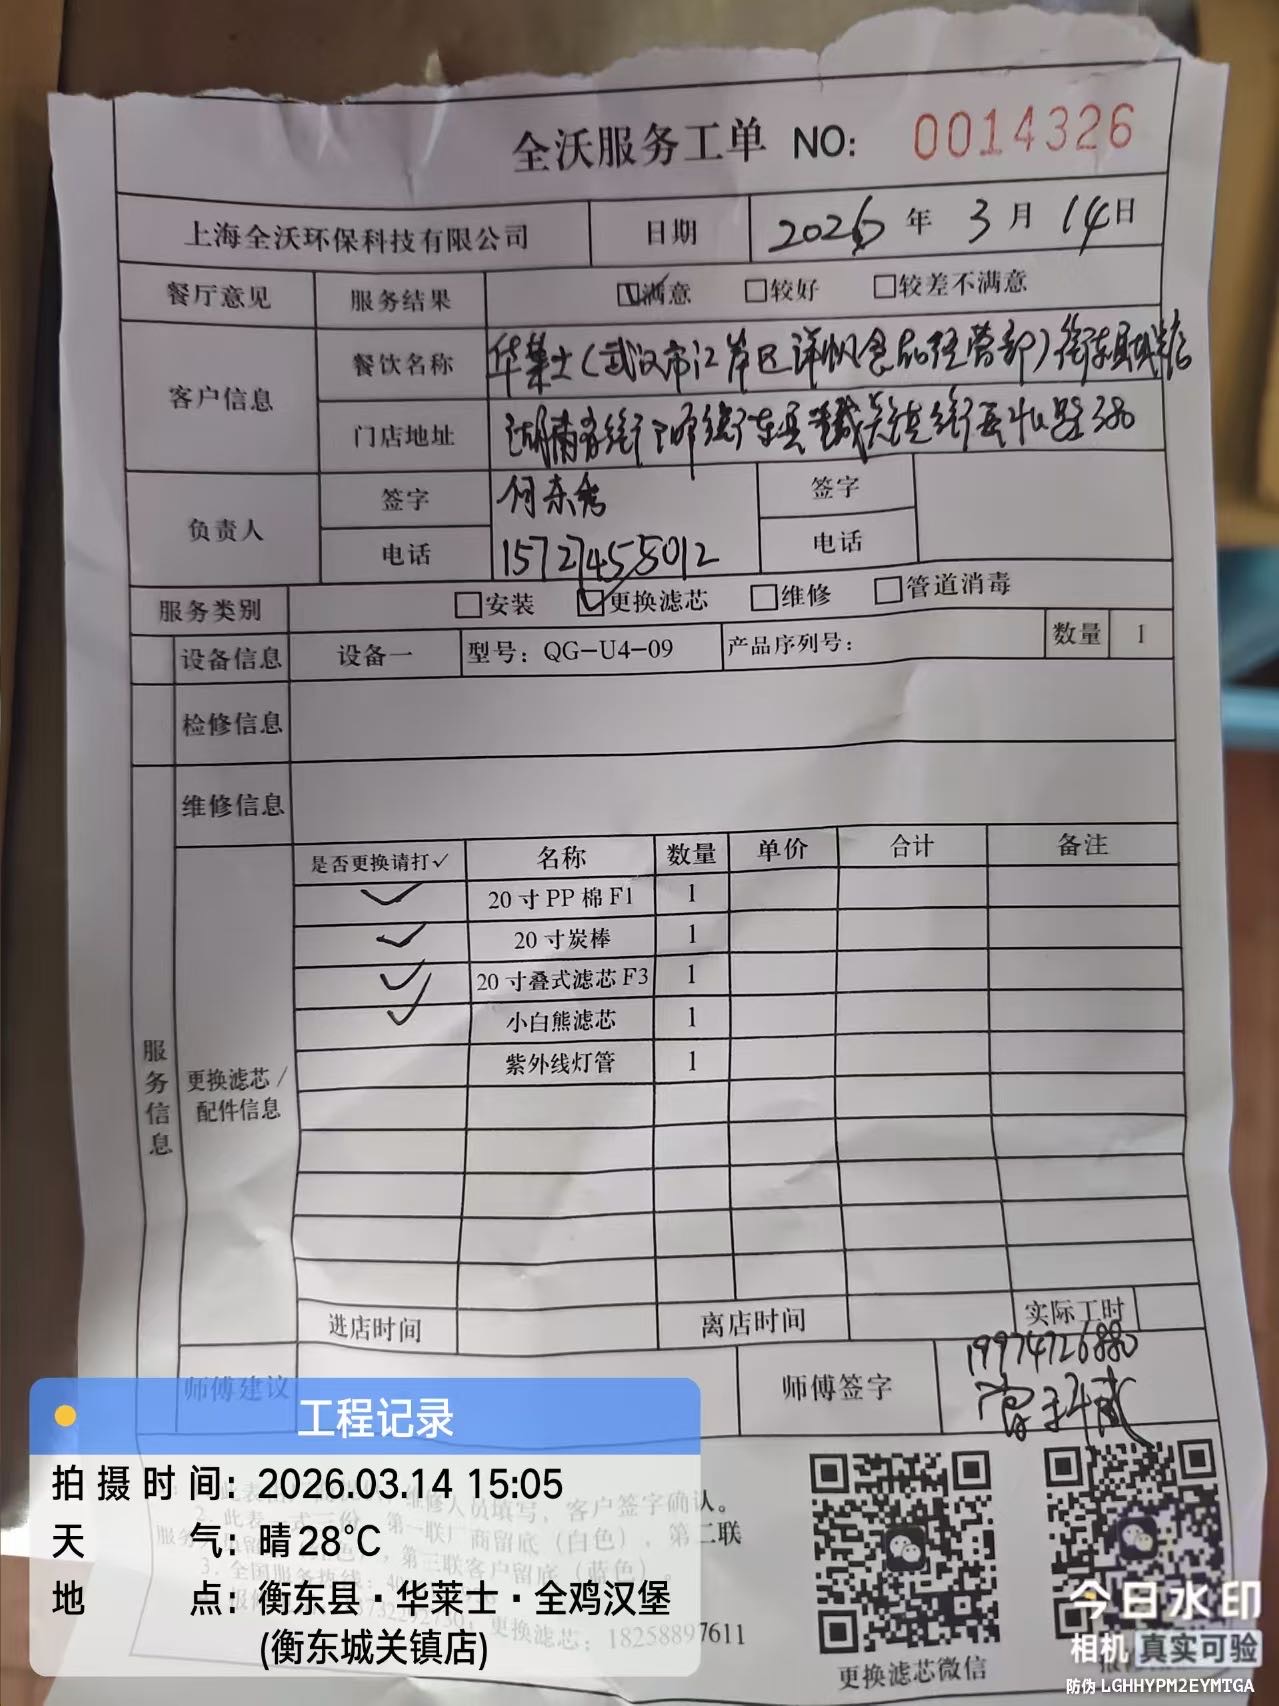 全沃服务工单 NO: 0014326
上海全沃环保科技有限公司 日期 2026年3月14日
餐厅意见 服务结果 ☑满意 □较好 □较差不满意
客户信息 餐饮名称 华莱士(武汉市江岸区详帆食品经营部)衡东县城关店
门店地址 湖南省衡阳市衡东县城关镇衡岳北路380
负责人 签字 何东秀 签字
电话 15727455012 电话
服务类别 □安装 ☑更换滤芯 □维修 □管道消毒
设备信息 设备一 型号: QG-U4-09 产品序列号: 数量 1
检修信息
维修信息
服务信息
更换滤芯/配件信息
是否更换请打✓ 名称 数量 单价 合计 备注
✓ 20寸PP棉F1 1
✓ 20寸炭棒 1
✓ 20寸叠式滤芯F3 1
✓ 小白熊滤芯 1
紫外线灯管 1
进店时间 离店时间 实际工时
师傅建议 师傅签字 19974726880
工程记录
拍摄时间: 2026.03.14 15:05
天气: 晴 28℃
地点: 衡东县·华莱士·全鸡汉堡
(衡东城关镇店)
维修人员填写,客户签字确认。
2. 此表一式三份,第一联厂商留底(白色),第二联
第三联客户留底(蓝色)。
3. 全国服务热线:
更换滤芯: 18258897611
更换滤芯微信
今日水印
相机 真实可验
防伪 LGHHYPM2EYMTGA